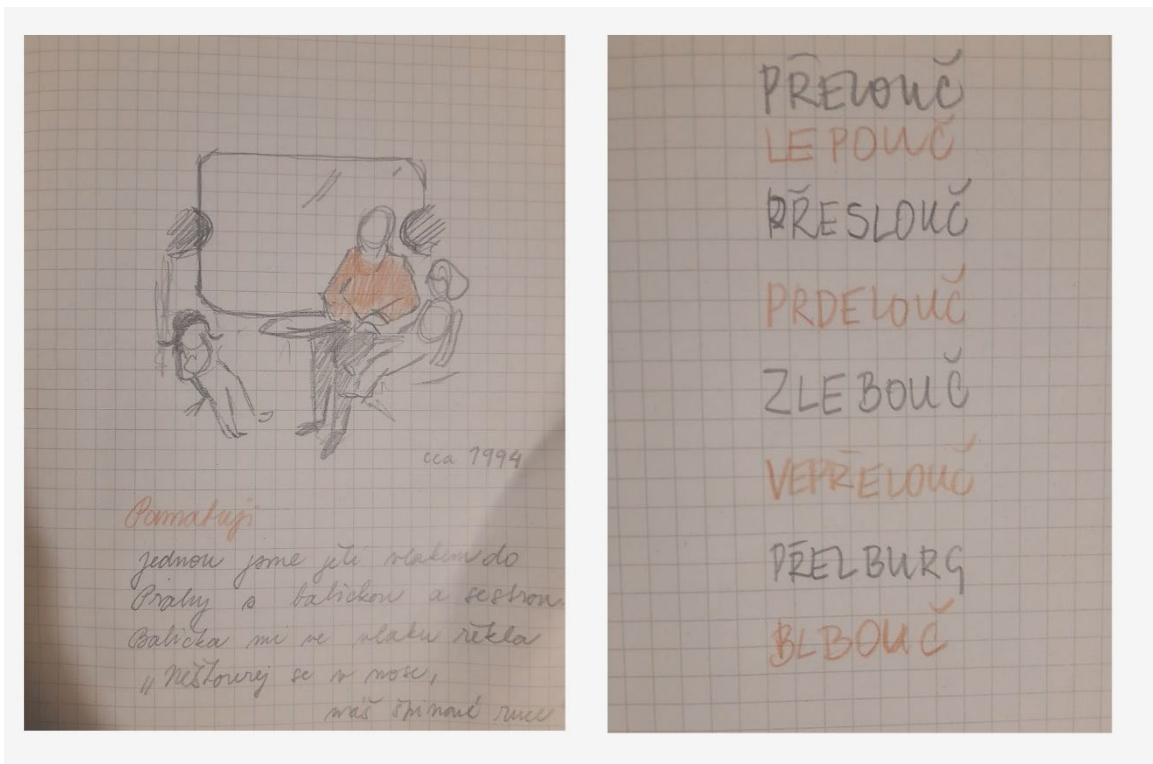 cca 1994
Pamatuji
jednou jsme jeli vlakem do
Prahy s babičkou a sestrou.
Babička mi ve vlaku řekla
„Nešťourej se v nose,
máš špinavé ruce
PŘELOUČ
LEPOUČ
PŘESLOUČ
PRDELOUČ
ZLEBOUČ
VEPŘELOUČ
PŘELBURG
BLBOUČ